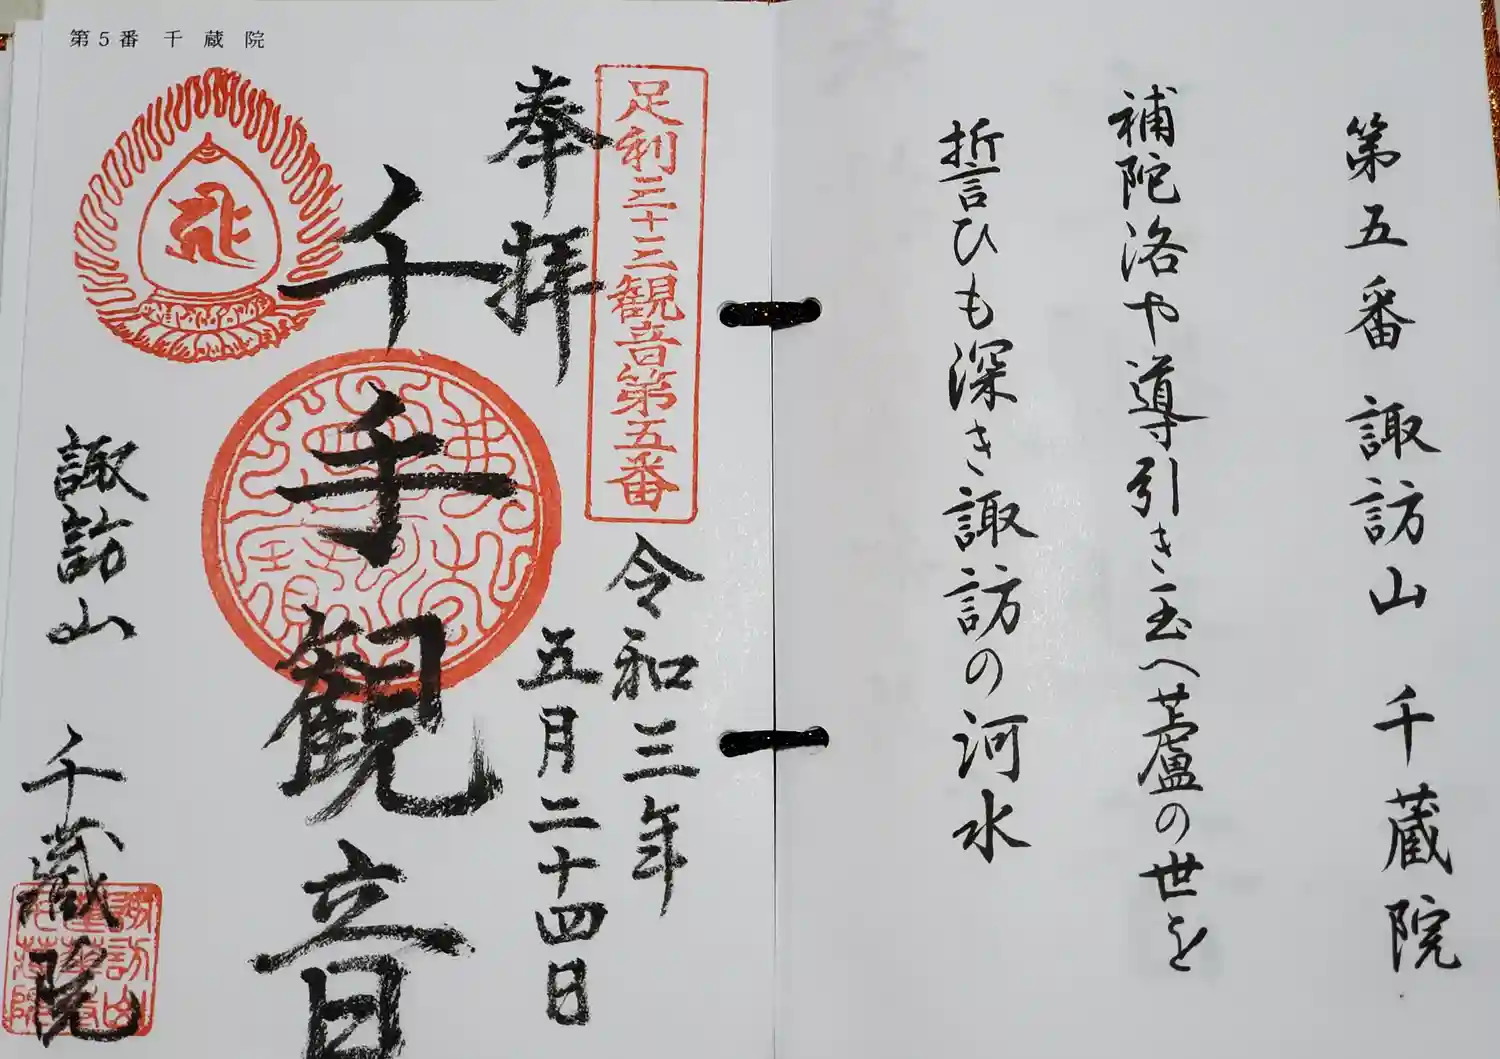 第五番 諏訪山 千蔵院
補陀洛や導引き玉へ芦蘆の世を
誓ひも深き諏訪の河水
第5番 千蔵院
足利三十三観音第五番
奉拝
令和三年
五月二十四日
千手観音
諏訪山 千蔵院